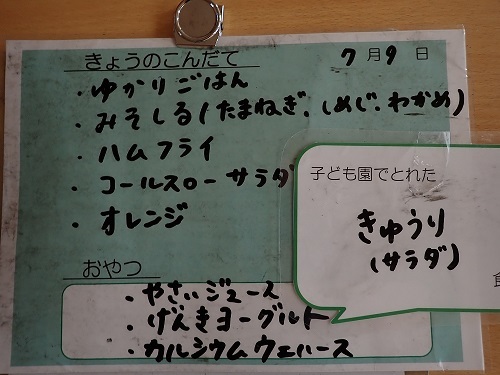 きょうのこんだて 7月9日
・ゆかりごはん
・みそしる(たまねぎ.しめじ.わかめ)
・ハムフライ
・コールスローサラダ
・オレンジ
子ども園でとれた
きゅうり
(サラダ)
おやつ
・やさいジュース
・げんきヨーグルト
・カルシウムウエハース